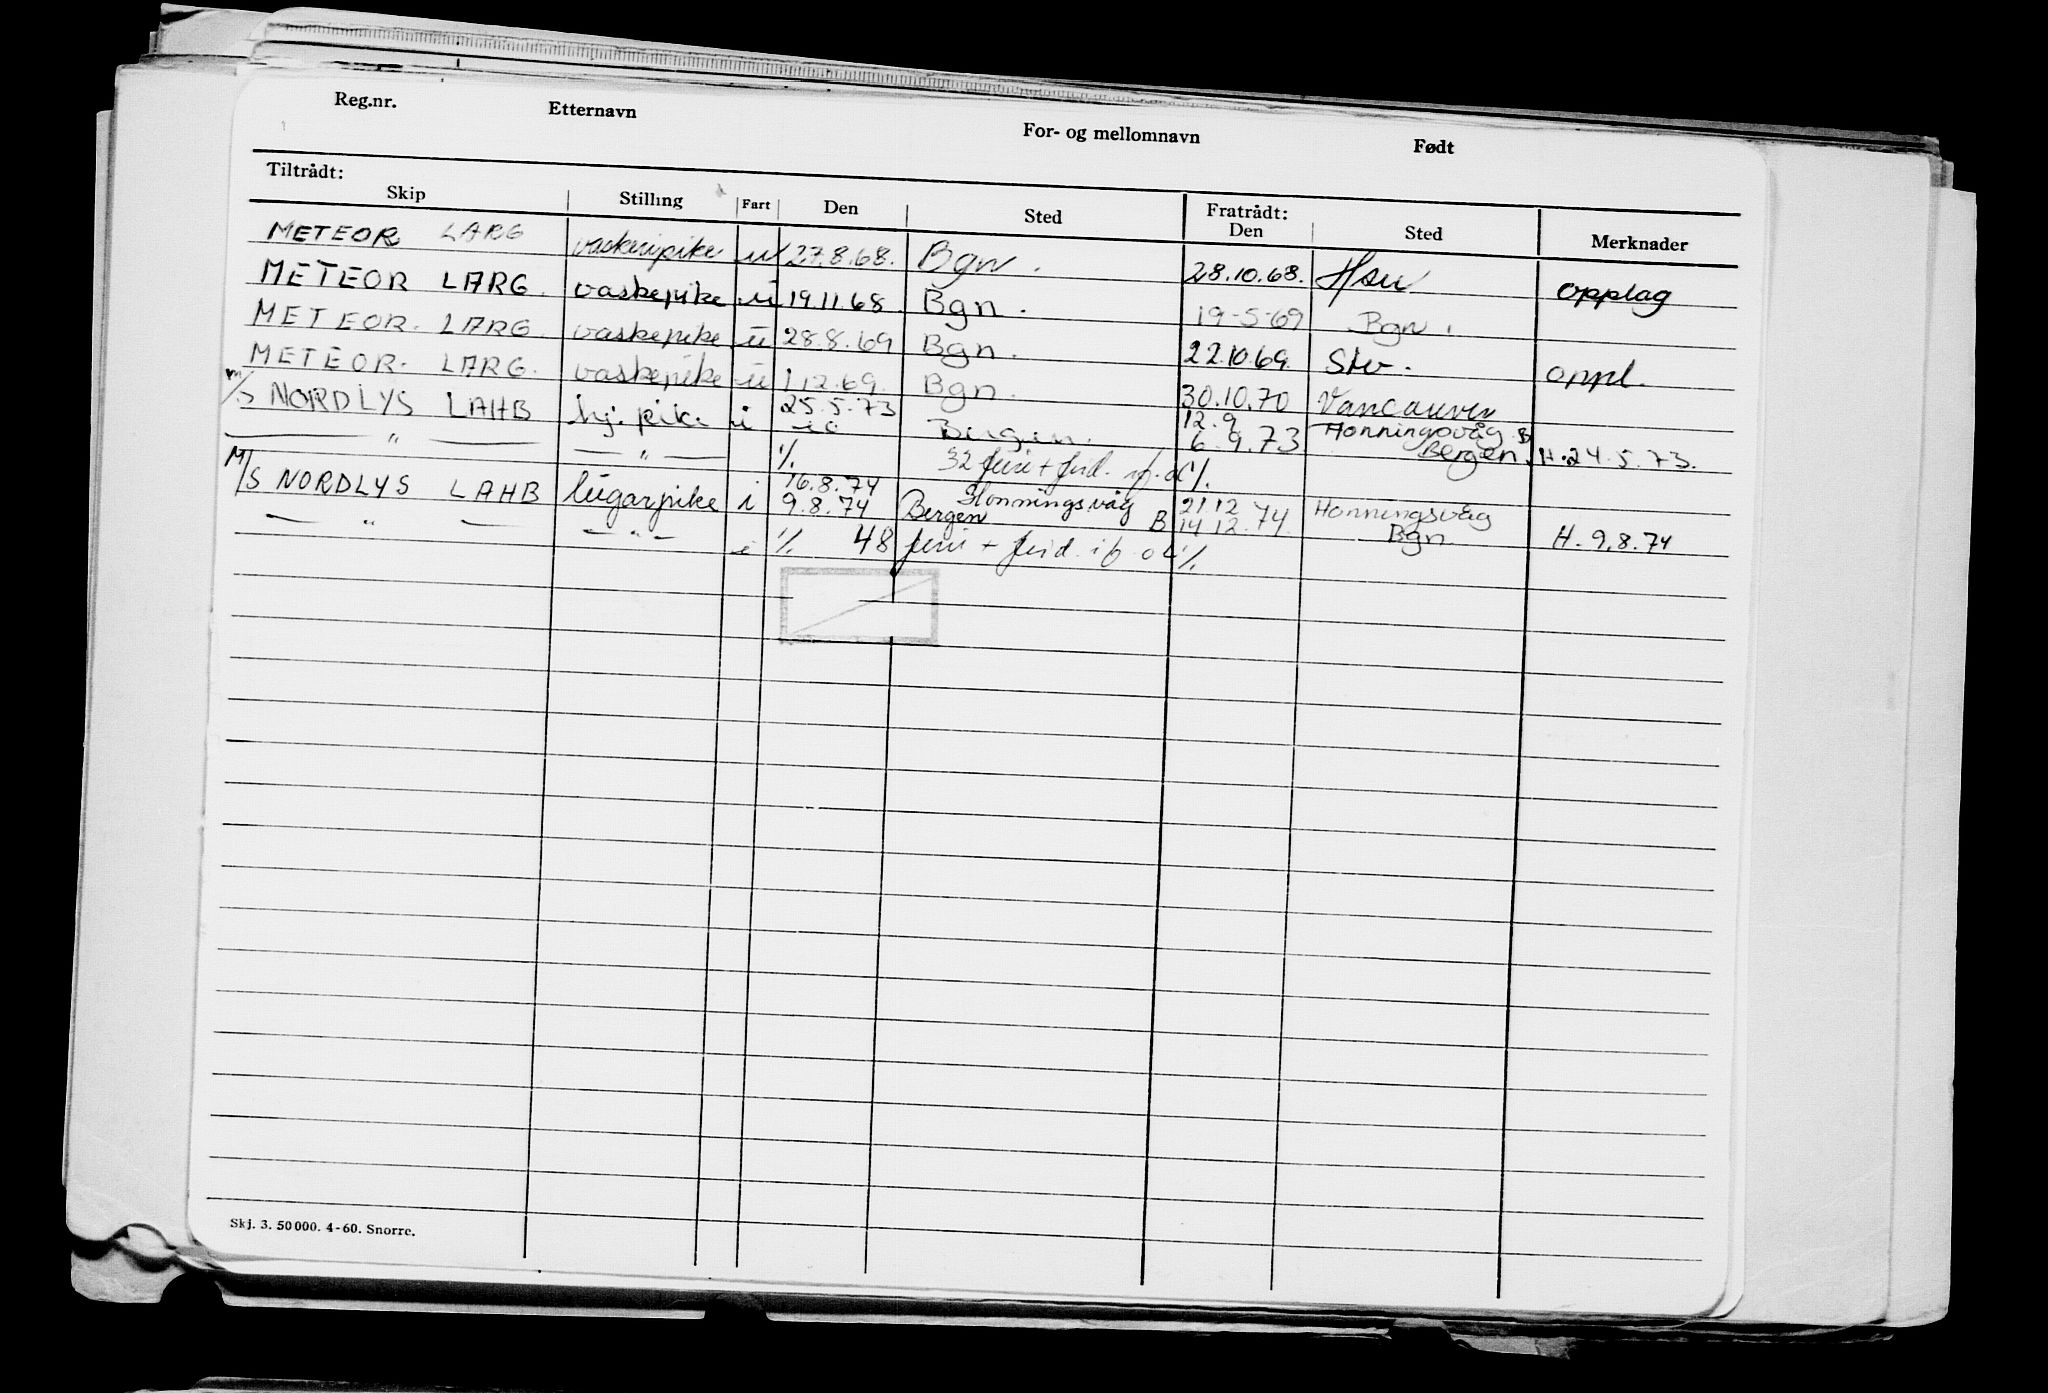 Reg.nr. Etternavn For- og mellomnavn Født
Tiltrådt: Fratrådt:
Skip Stilling Fart Den Sted Den Sted Merknader
METEOR LARG vaskeripike u 27.8.68. Bgn. 28.10.68. Hsu opplag
METEOR LARG. vaskepike u 19.11.68. Bgn. 19-5-69 Bgn.
METEOR. LARG. vaskepike u 28.8.69 Bgn. 22.10.69. Stv. oppl.
METEOR. LARG. vaskepike u 1.12.69. Bgn. 30.10.70 Vancauver
M/S NORDLYS LAHB hj. pike i 25.5.73 Bergen. 12.9 Honningsvåg B
— " — — " — 6.9.73 Bergen. H. 24.5.73.
% 32 feri + frid. if. ol %.
M/S NORDLYS LAHB lugarpike i 16.8.74 Honningsvåg 21.12 Honningsvåg
— " — — " — 9.8.74 Bergen B 14.12.74. Bgn. H. 9.8.74
i % 48 feri + frid. if. ol %.
Skj. 3. 50 000. 4-60. Snorre.